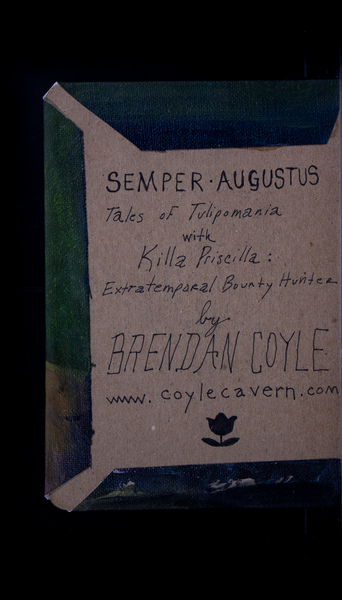 SEMPER·AUGUSTUS
Tales of Tulipomania
with
Killa Priscilla:
Extratemporal Bounty Hunter
by
BRENDAN COYLE
www.coylecavern.com